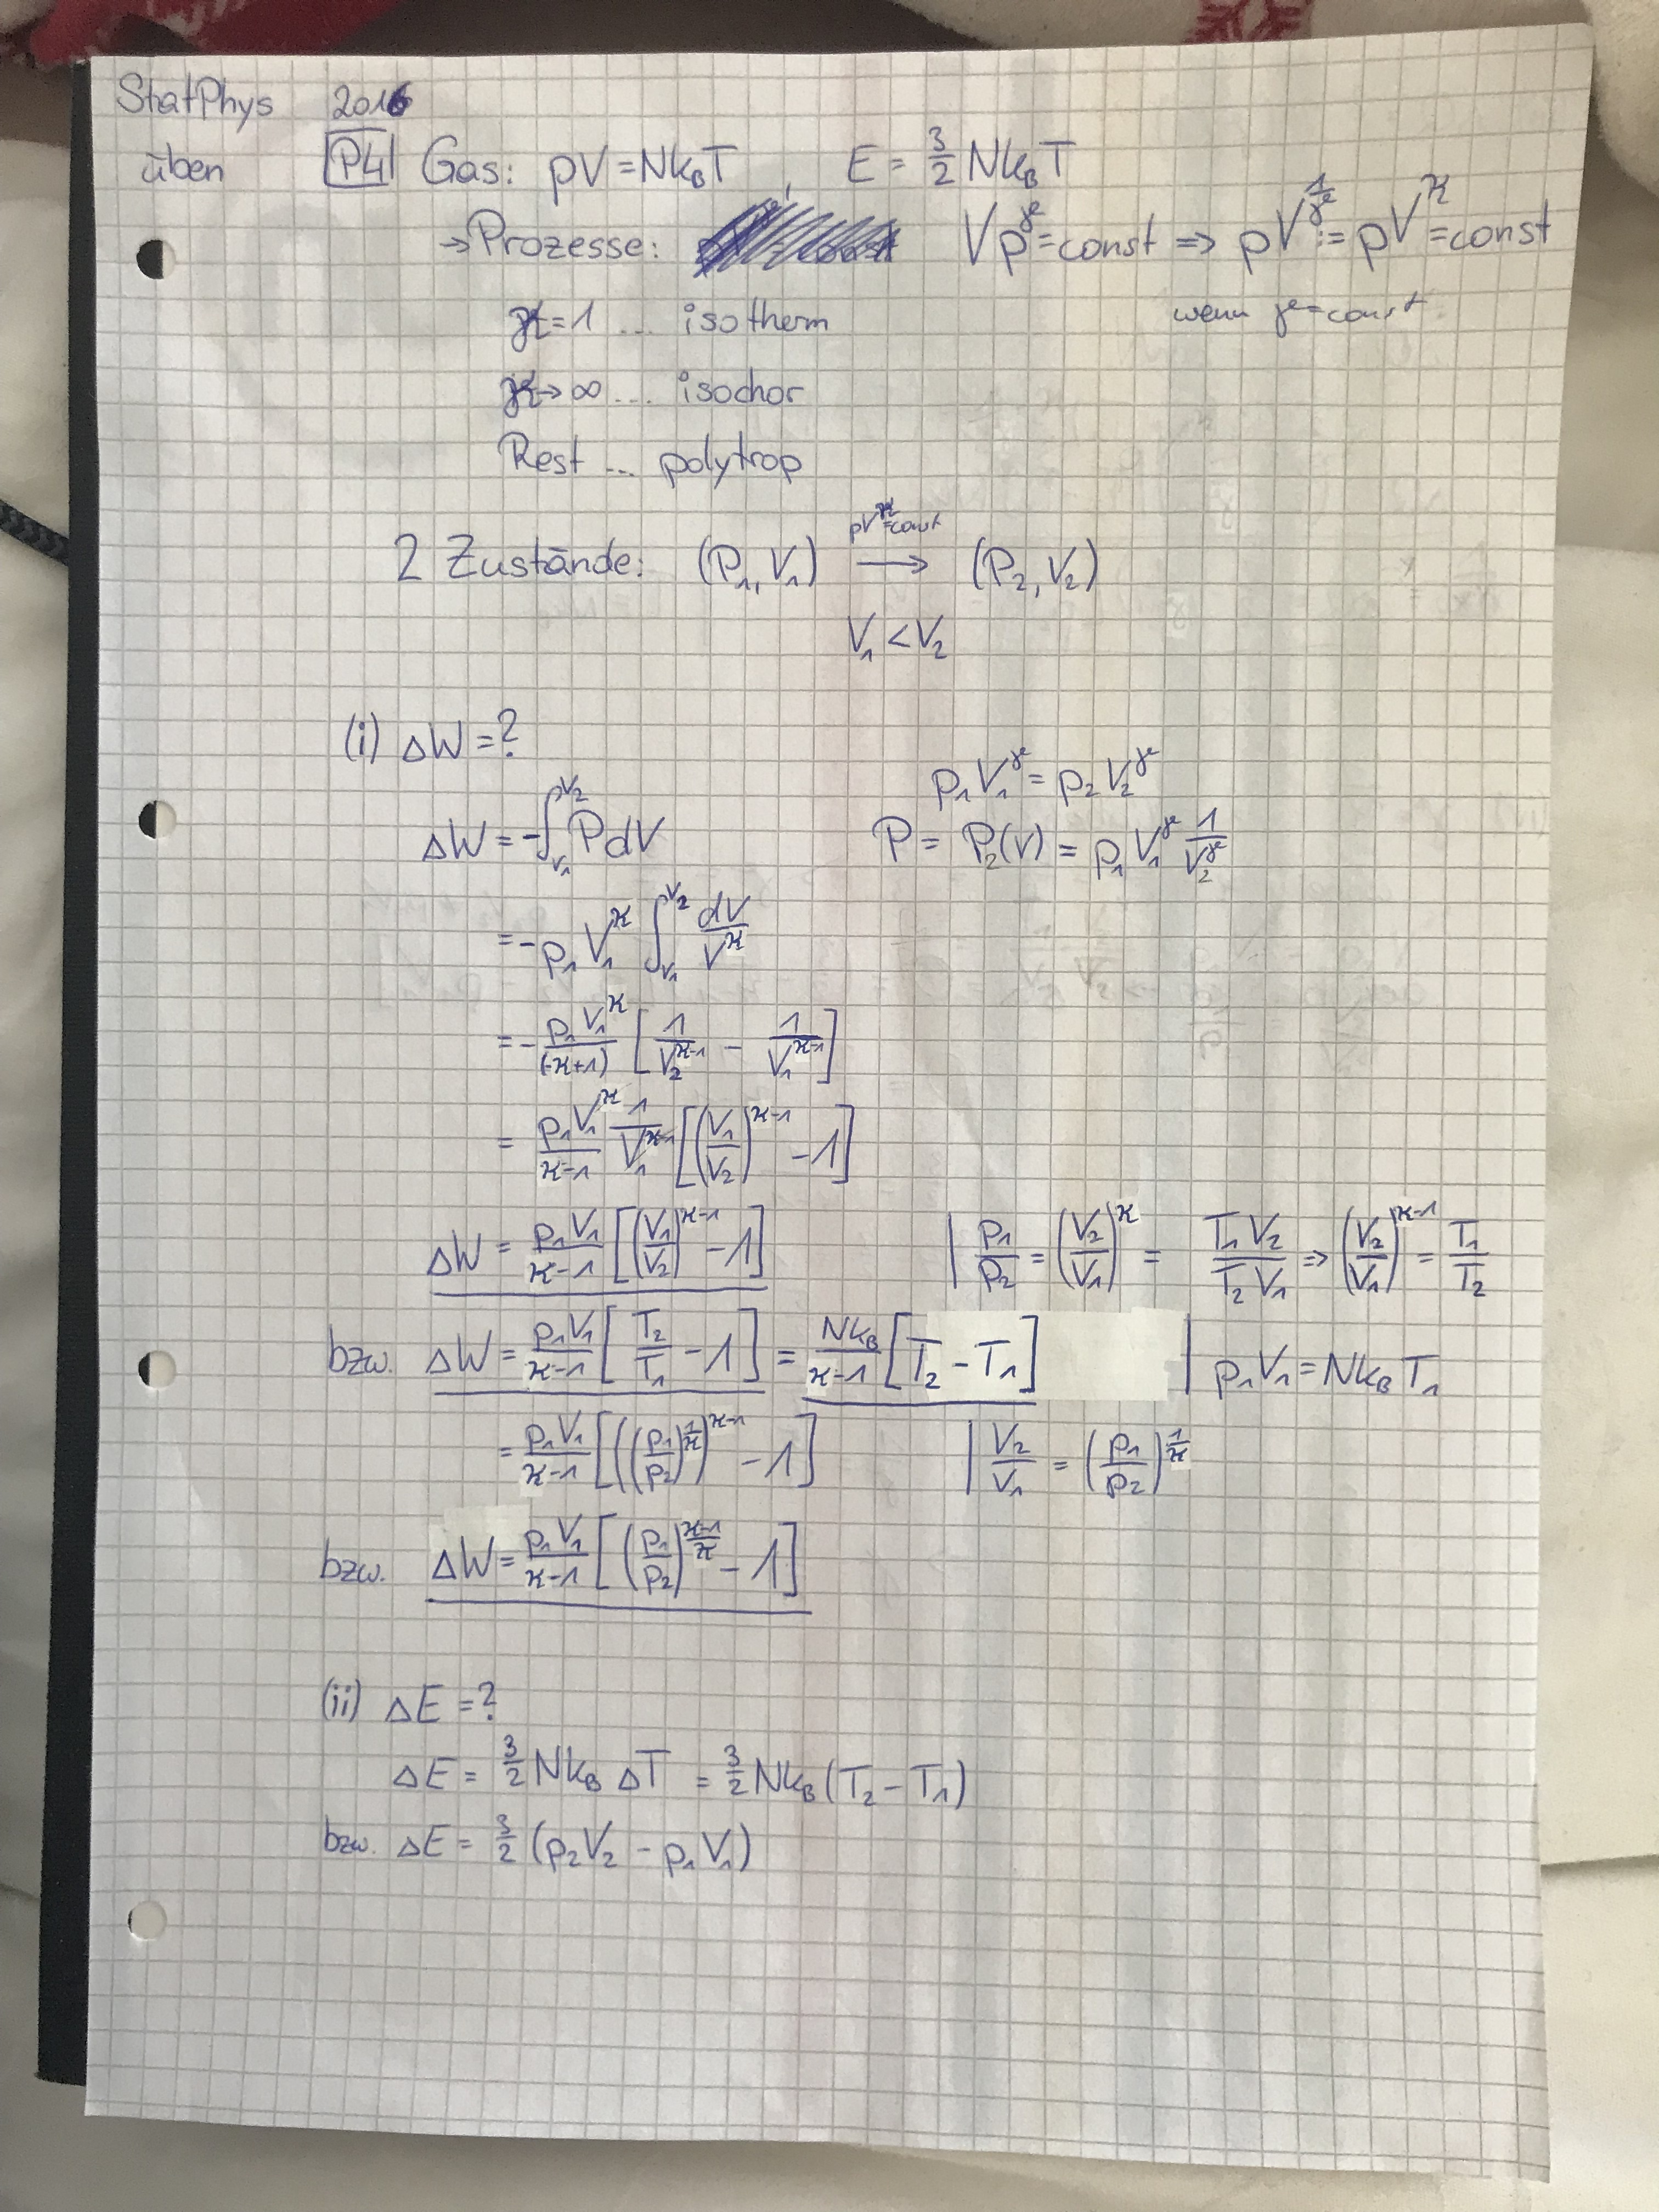 StatPhys 2016
üben P4 Gas: pV = Nk_BT , E = 3/2 Nk_BT
→ Prozesse: Vp^γ = const ⇒ pV^(1/γ) := pV^ϰ = const
ϰ = 1 ... isotherm wenn γ = const.
ϰ → ∞ ... isochor
Rest ... polytrop
pV^ϰ = const
2 Zustände: (P₁, V₁) ⟶ (P₂, V₂)
V₁ < V₂
(i) ΔW = ?
p₁V₁^γ = p₂V₂^γ
ΔW = -∫_{V₁}^{V₂} P dV P = P₂(V) = p₁V₁^γ 1/V₂^γ
= -p₁V₁^ϰ ∫_{V₁}^{V₂} dV/V^ϰ
= - p₁V₁^ϰ/(-ϰ+1) [1/V₂^(ϰ-1) - 1/V₁^(ϰ-1)]
= p₁V₁^ϰ/(ϰ-1) 1/V₁^(ϰ-1) [(V₁/V₂)^(ϰ-1) - 1]
ΔW = p₁V₁/(ϰ-1) [(V₁/V₂)^(ϰ-1) - 1] | p₁/p₂ = (V₂/V₁)^ϰ = T₁V₂/T₂V₁ ⇒ (V₂/V₁)^(ϰ-1) = T₁/T₂
bzw. ΔW = p₁V₁/(ϰ-1) [T₂/T₁ - 1] = Nk_B/(ϰ-1) [T₂ - T₁] | p₁V₁ = Nk_BT₁
= p₁V₁/(ϰ-1) [((p₁/p₂)^(1/ϰ))^(ϰ-1) - 1] | V₂/V₁ = (p₁/p₂)^(1/ϰ)
bzw. ΔW = p₁V₁/(ϰ-1) [(p₁/p₂)^((ϰ-1)/ϰ) - 1]
(ii) ΔE = ?
ΔE = 3/2 Nk_B ΔT = 3/2 Nk_B (T₂ - T₁)
bzw. ΔE = 3/2 (p₂V₂ - p₁V₁)